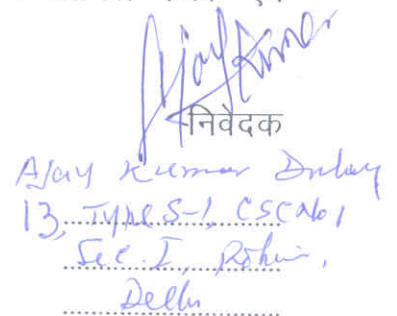 Ajay Kumar
निवेदक
Ajay Kumar Dubey
13, Type S-1, CSC No 1
Sec. I, Rohini,
Delhi